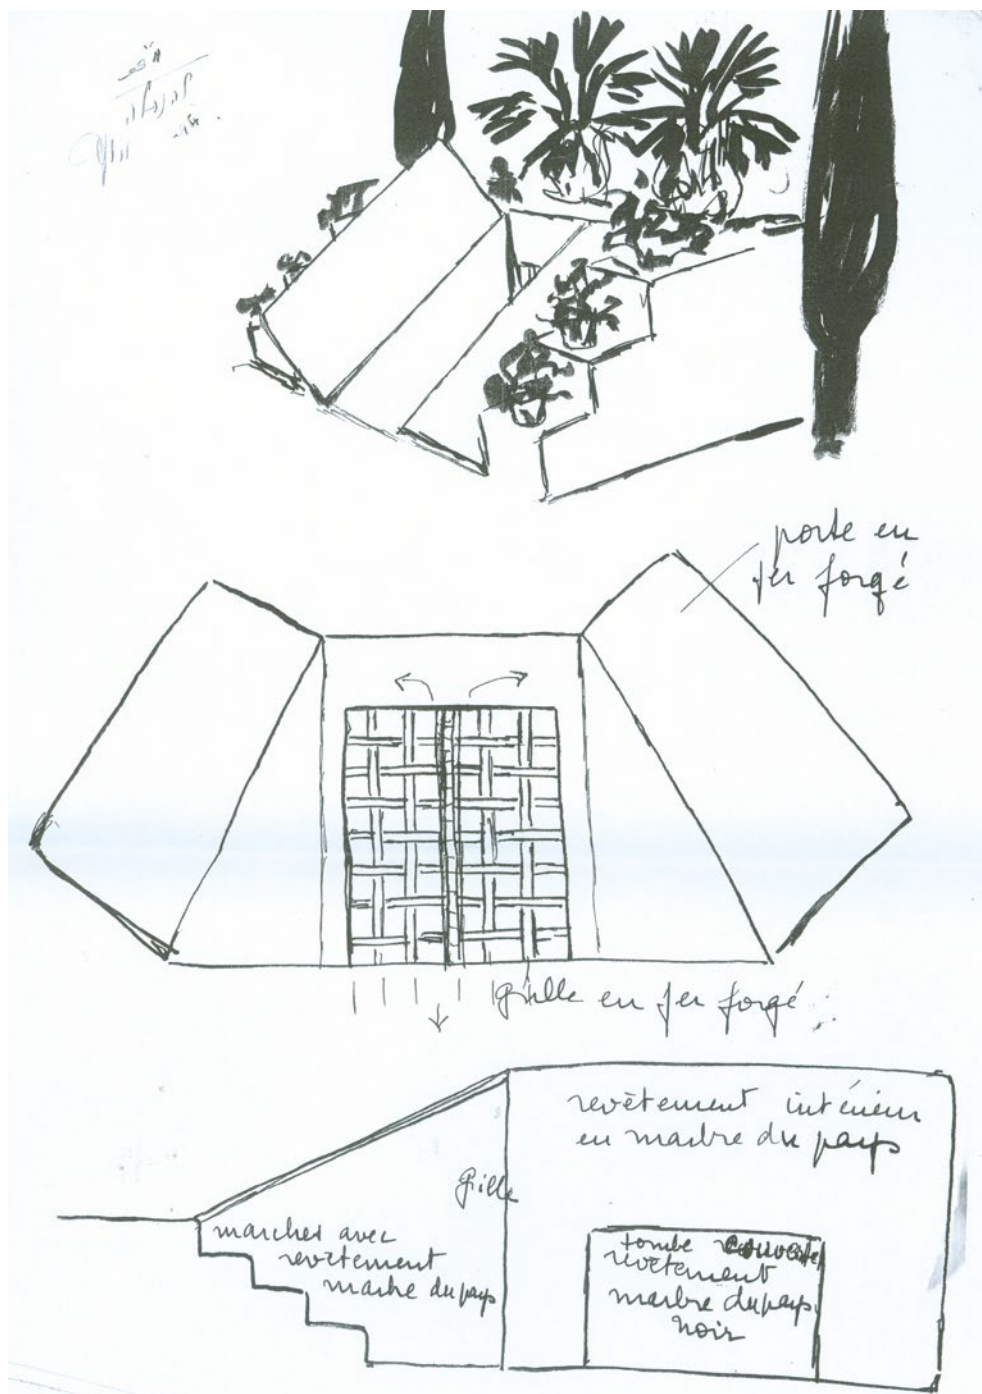 porte en
fer forgé
grille en fer forgé
revêtement intérieur
en marbre du pays
grille
marches avec
revêtement
marbre du pays
tombe
revêtement
marbre du pays
noir